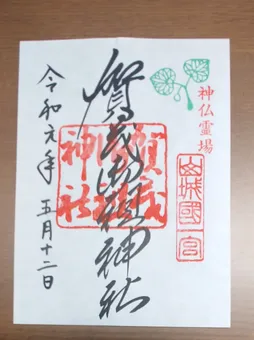 神仏霊場
山城國一宮
賀茂御祖神社
賀茂御祖神社
令和元年 五月十二日